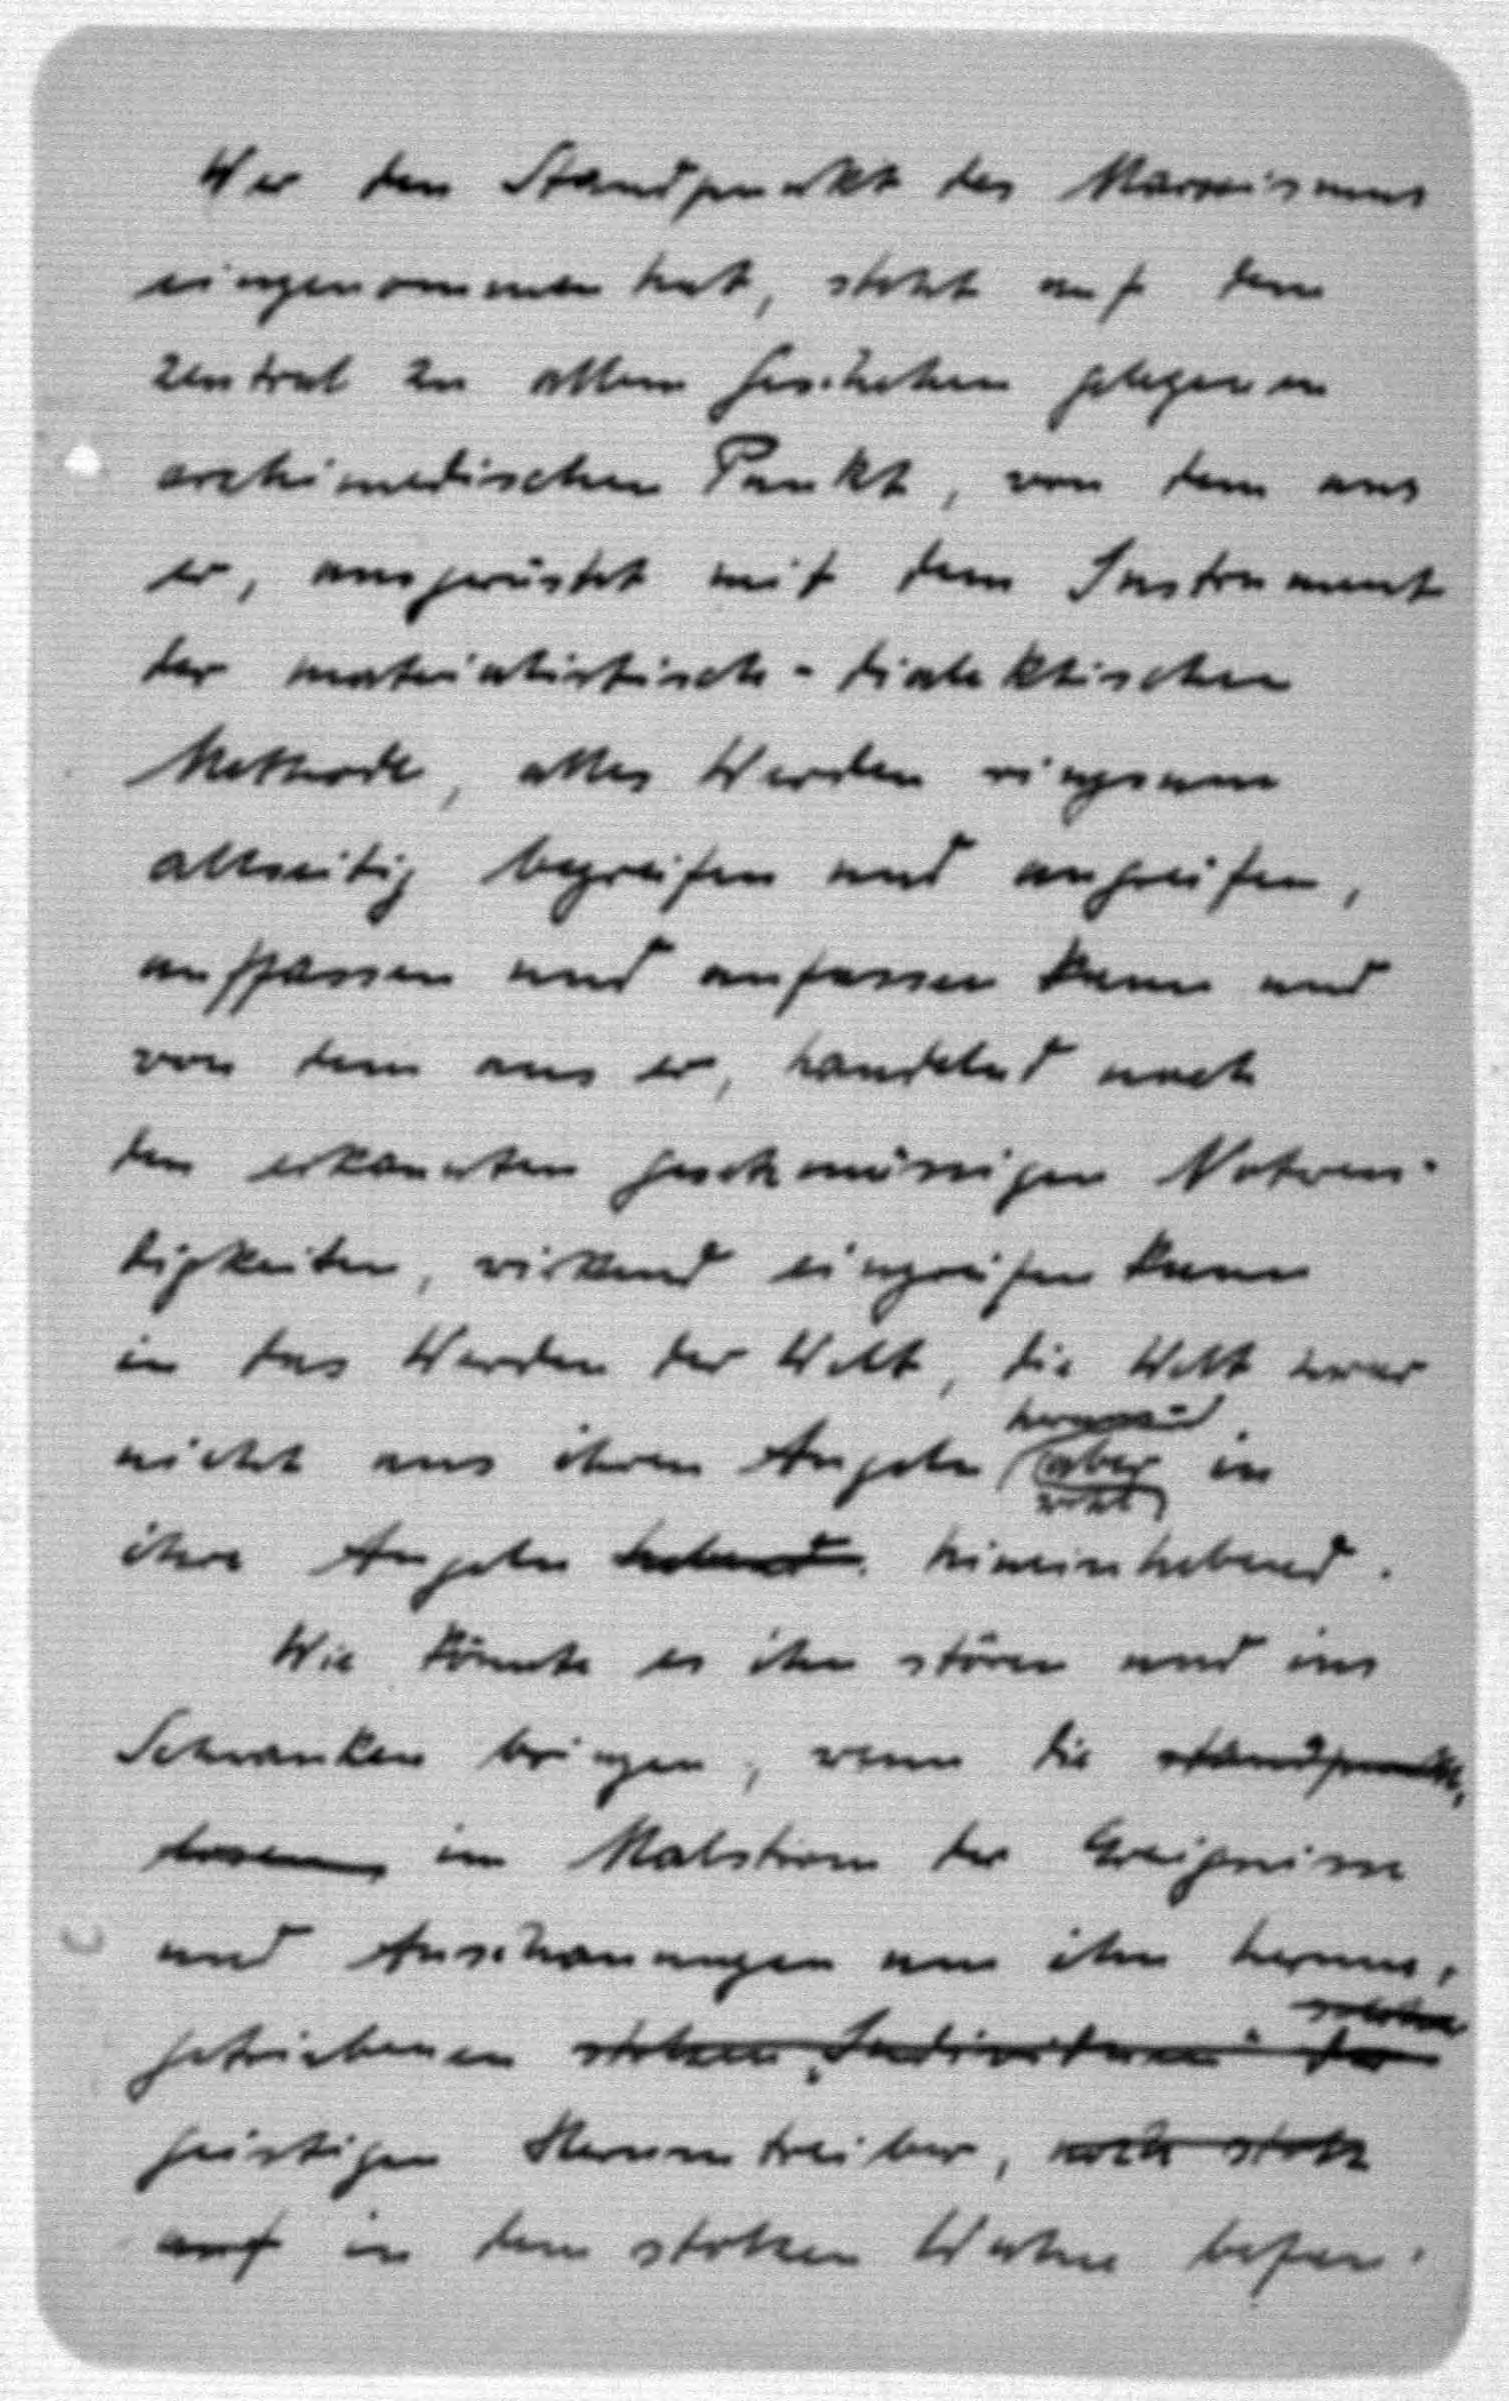 Wer den Standpunkt des Marxismus
eingenommen hat, steht auf dem
zentral zu allem Geschehen gelegenen
archimedischen Punkt, von dem aus
er, ausgerüstet mit dem Instrument
der materialistisch-dialektischen
Methode, alles Werden ringsum
allseitig begreifen und angreifen,
auffassen und anfassen kann und
von dem aus er, handelnd nach
den erkannten gesetzmässigen Notwen-
digkeiten, wirkend eingreifen kann
in das Werden der Welt, die Welt zwar
nicht aus ihren Angeln (aber in
wohl)
ihre Angeln hebend hineinhebend.
Wie könnte es ihn stören und ins
Schwanken bringen, wenn die standpunkt-
losen, im Malstrom der Ereignisse
und Anschauungen um ihn herum-
getriebenen stolzen „Individuen" der
geistigen Herumtreiber, noch stolz
auf in dem stolzen Wahne befan-